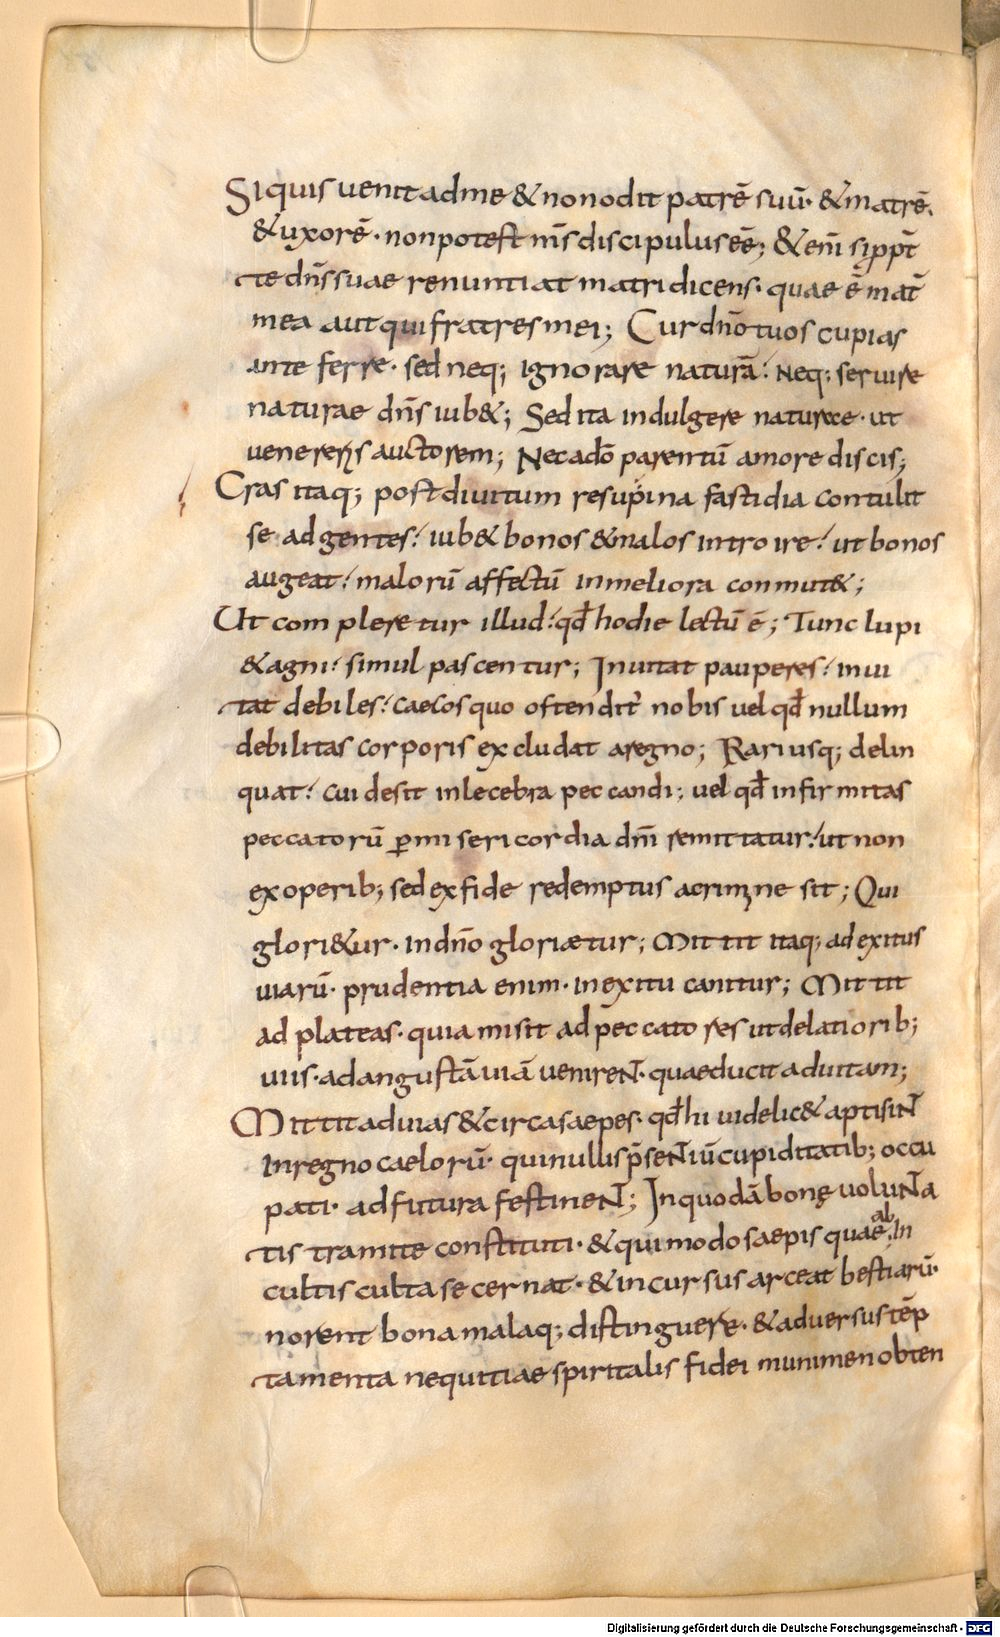 Siquis uenit adme & nonodit patrē suū· & matrē.
& uxorē· nonpotest m̄s discipulus eē; & enī si ꝓpt̄
te dn̄s suae renuntiat matri dicens· quae ē mat̄
mea aut qui fratres mei; Cur dn̄o tuos cupias
ante ferre· sed neq; ignorare naturā? Neq; seruire
naturae dn̄s iub&; Sed ita indulgere naturae· ut
venereris auctorem; Nec adō parentū amore discis;
Cras itaq; post diuitum resupina fastidia contulit
se ad gentes? iub& bonos & malos introire? ut bonos
augeat? malorū affectū inmeliora conmut&;
Ut compleretur illud? qd̄ hodie lectū ē; Tunc lupi
& agni? simul pascentur; Inuitat pauperes? inui
tat debiles? caecos quo ostendit nobis uel qd̄ nullum
debilitas corporis excludat aregno; Rariusq; delin
quat? cui desit inlecebra peccandi; uel qd̄ infirmitas
peccatorū ꝑ misericordia dn̄i remittatur? ut non
ex operib; sed ex fide redemptus acrimine sit; Qui
glori&ur· indn̄o gloriætur; Mittit itaq; ad exitus
uiarū· prudentia enim· inexitu canitur; Mittit
ad plateas· quia misit ad peccatores ut delatiorib;
uiis· ad angustā uiā uenireNT· quae ducit aduitam;
Mittit aduias & circa saepes· qd̄ hi uidelic& apti siNT
Inregno caelorū· qui nullis p̄seNTiū cupiditatib; occu
pati· ad futura festineNT; In quodā bonę uoluNTa
tis tramite constituti· & qui modo saepis quae ab In
cultis culta secernat· & incursus arceat bestiarū·
norent bona malaq; distinguere· & aduersus tēp
tamenta nequitiae spiritalis fidei munimen obten
Digitalisierung gefördert durch die Deutsche Forschungsgemeinschaft - DFG